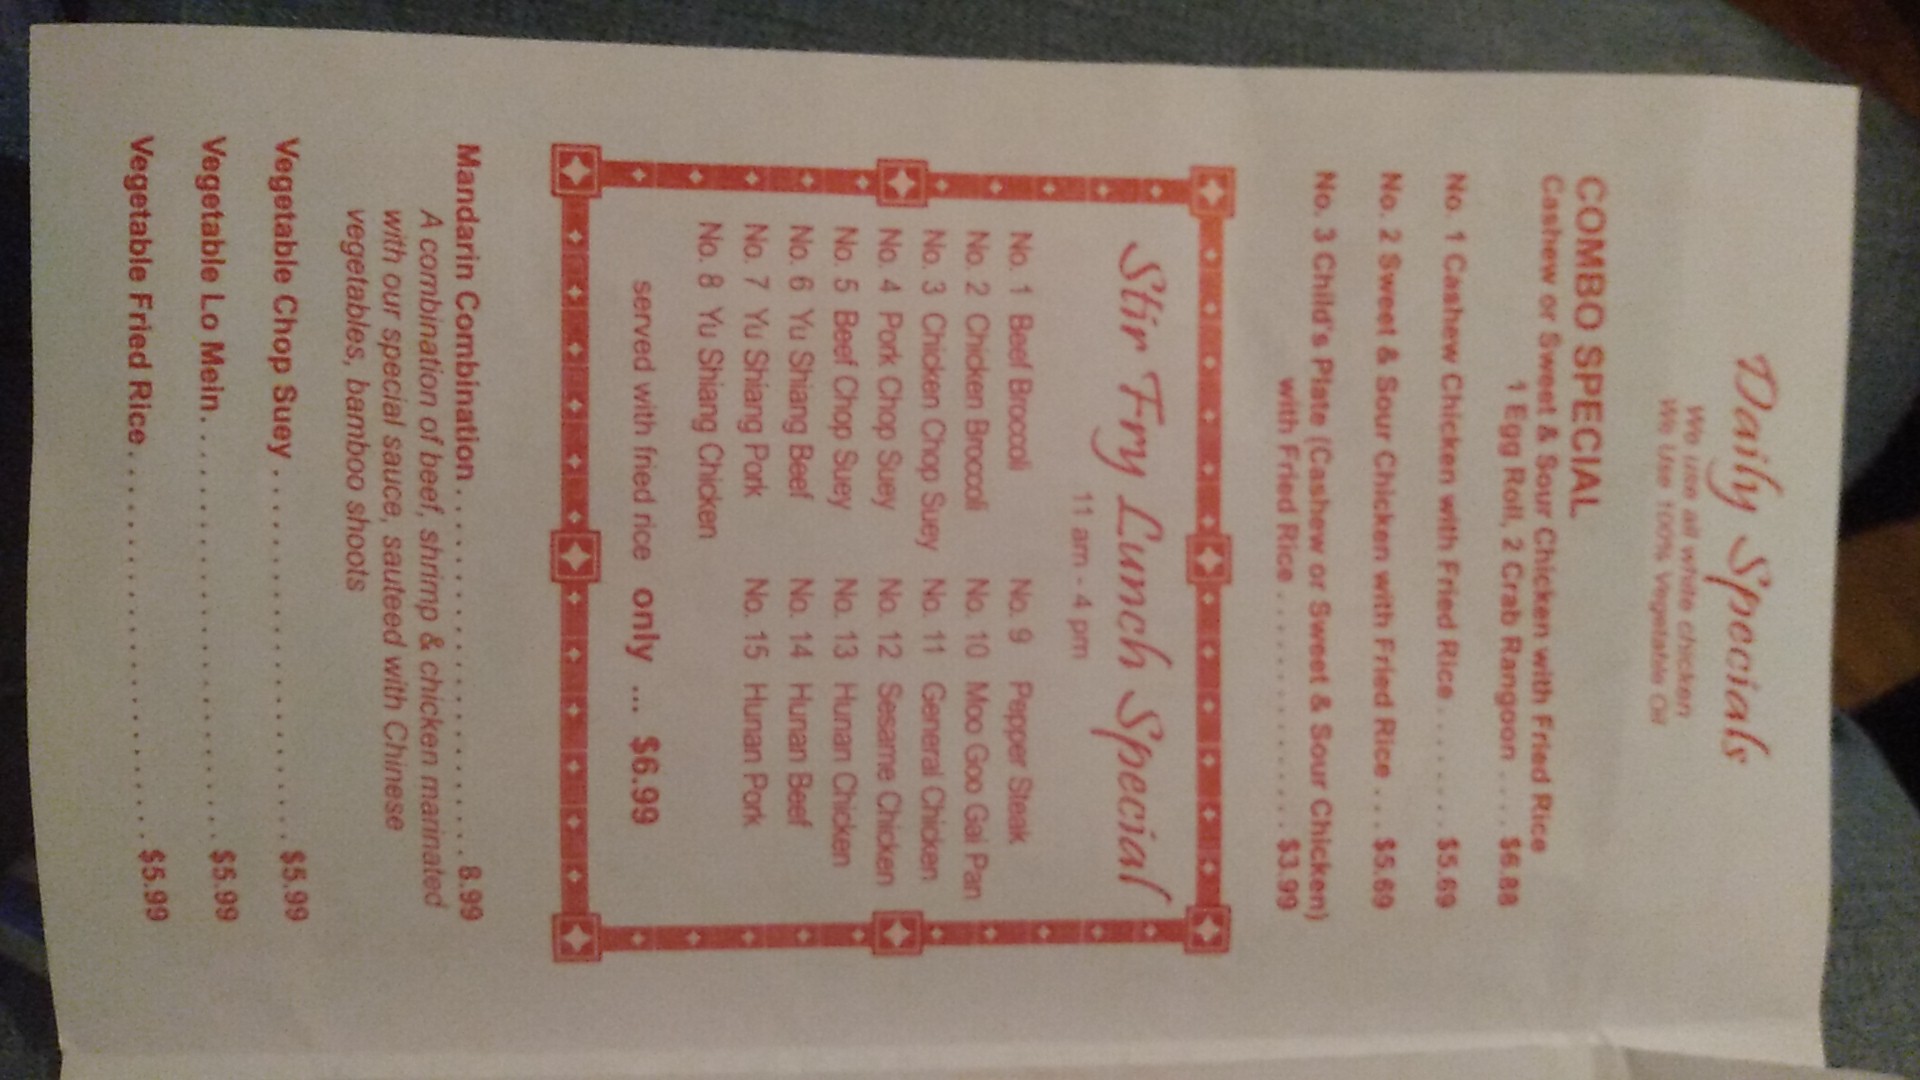 Daily Specials
We use all white chicken
We Use 100% Vegetable Oil
COMBO SPECIAL
Cashew or Sweet & Sour Chicken with Fried Rice
1 Egg Roll, 2 Crab Rangoon .... $6.88
No. 1 Cashew Chicken with Fried Rice ........ $5.69
No. 2 Sweet & Sour Chicken with Fried Rice ... $5.69
No. 3 Child's Plate (Cashew or Sweet & Sour Chicken)
with Fried Rice ................ $3.99
Stir Fry Lunch Special
11 am - 4 pm
No. 1 Beef Broccoli
No. 2 Chicken Broccoli
No. 3 Chicken Chop Suey
No. 4 Pork Chop Suey
No. 5 Beef Chop Suey
No. 6 Yu Shiang Beef
No. 7 Yu Shiang Pork
No. 8 Yu Shiang Chicken
No. 9 Pepper Steak
No. 10 Moo Goo Gai Pan
No. 11 General Chicken
No. 12 Sesame Chicken
No. 13 Hunan Chicken
No. 14 Hunan Beef
No. 15 Hunan Pork
served with fried rice only ... $6.99
Mandarin Combination......................... 8.99
A combination of beef, shrimp & chicken marinated
with our special sauce, sauteed with Chinese
vegetables, bamboo shoots
Vegetable Chop Suey ......................... $5.99
Vegetable Lo Mein............................ $5.99
Vegetable Fried Rice.......................... $5.99